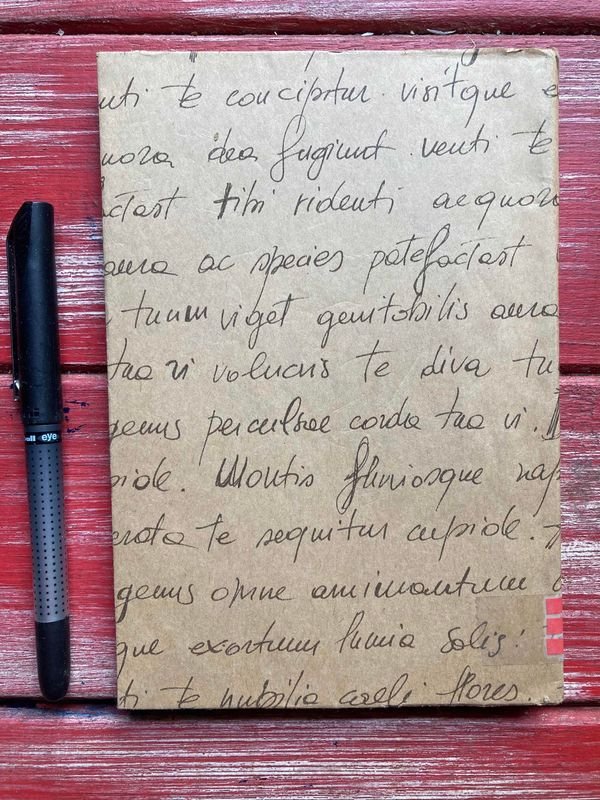 uti te concipitur visitque e
uora dea fugiunt venti te
actast tibi rident aequora
aura ac species patefactast
tuum viget genitabilis aura
tua vi volucris te diva tu
genus perculsae corda tua vi.
pide. Montis fluviosque rap
erata te sequitur cupide.
genus omne animantum
que exortum lumia solis:
ti te nubilia caeli flores.
ball eye